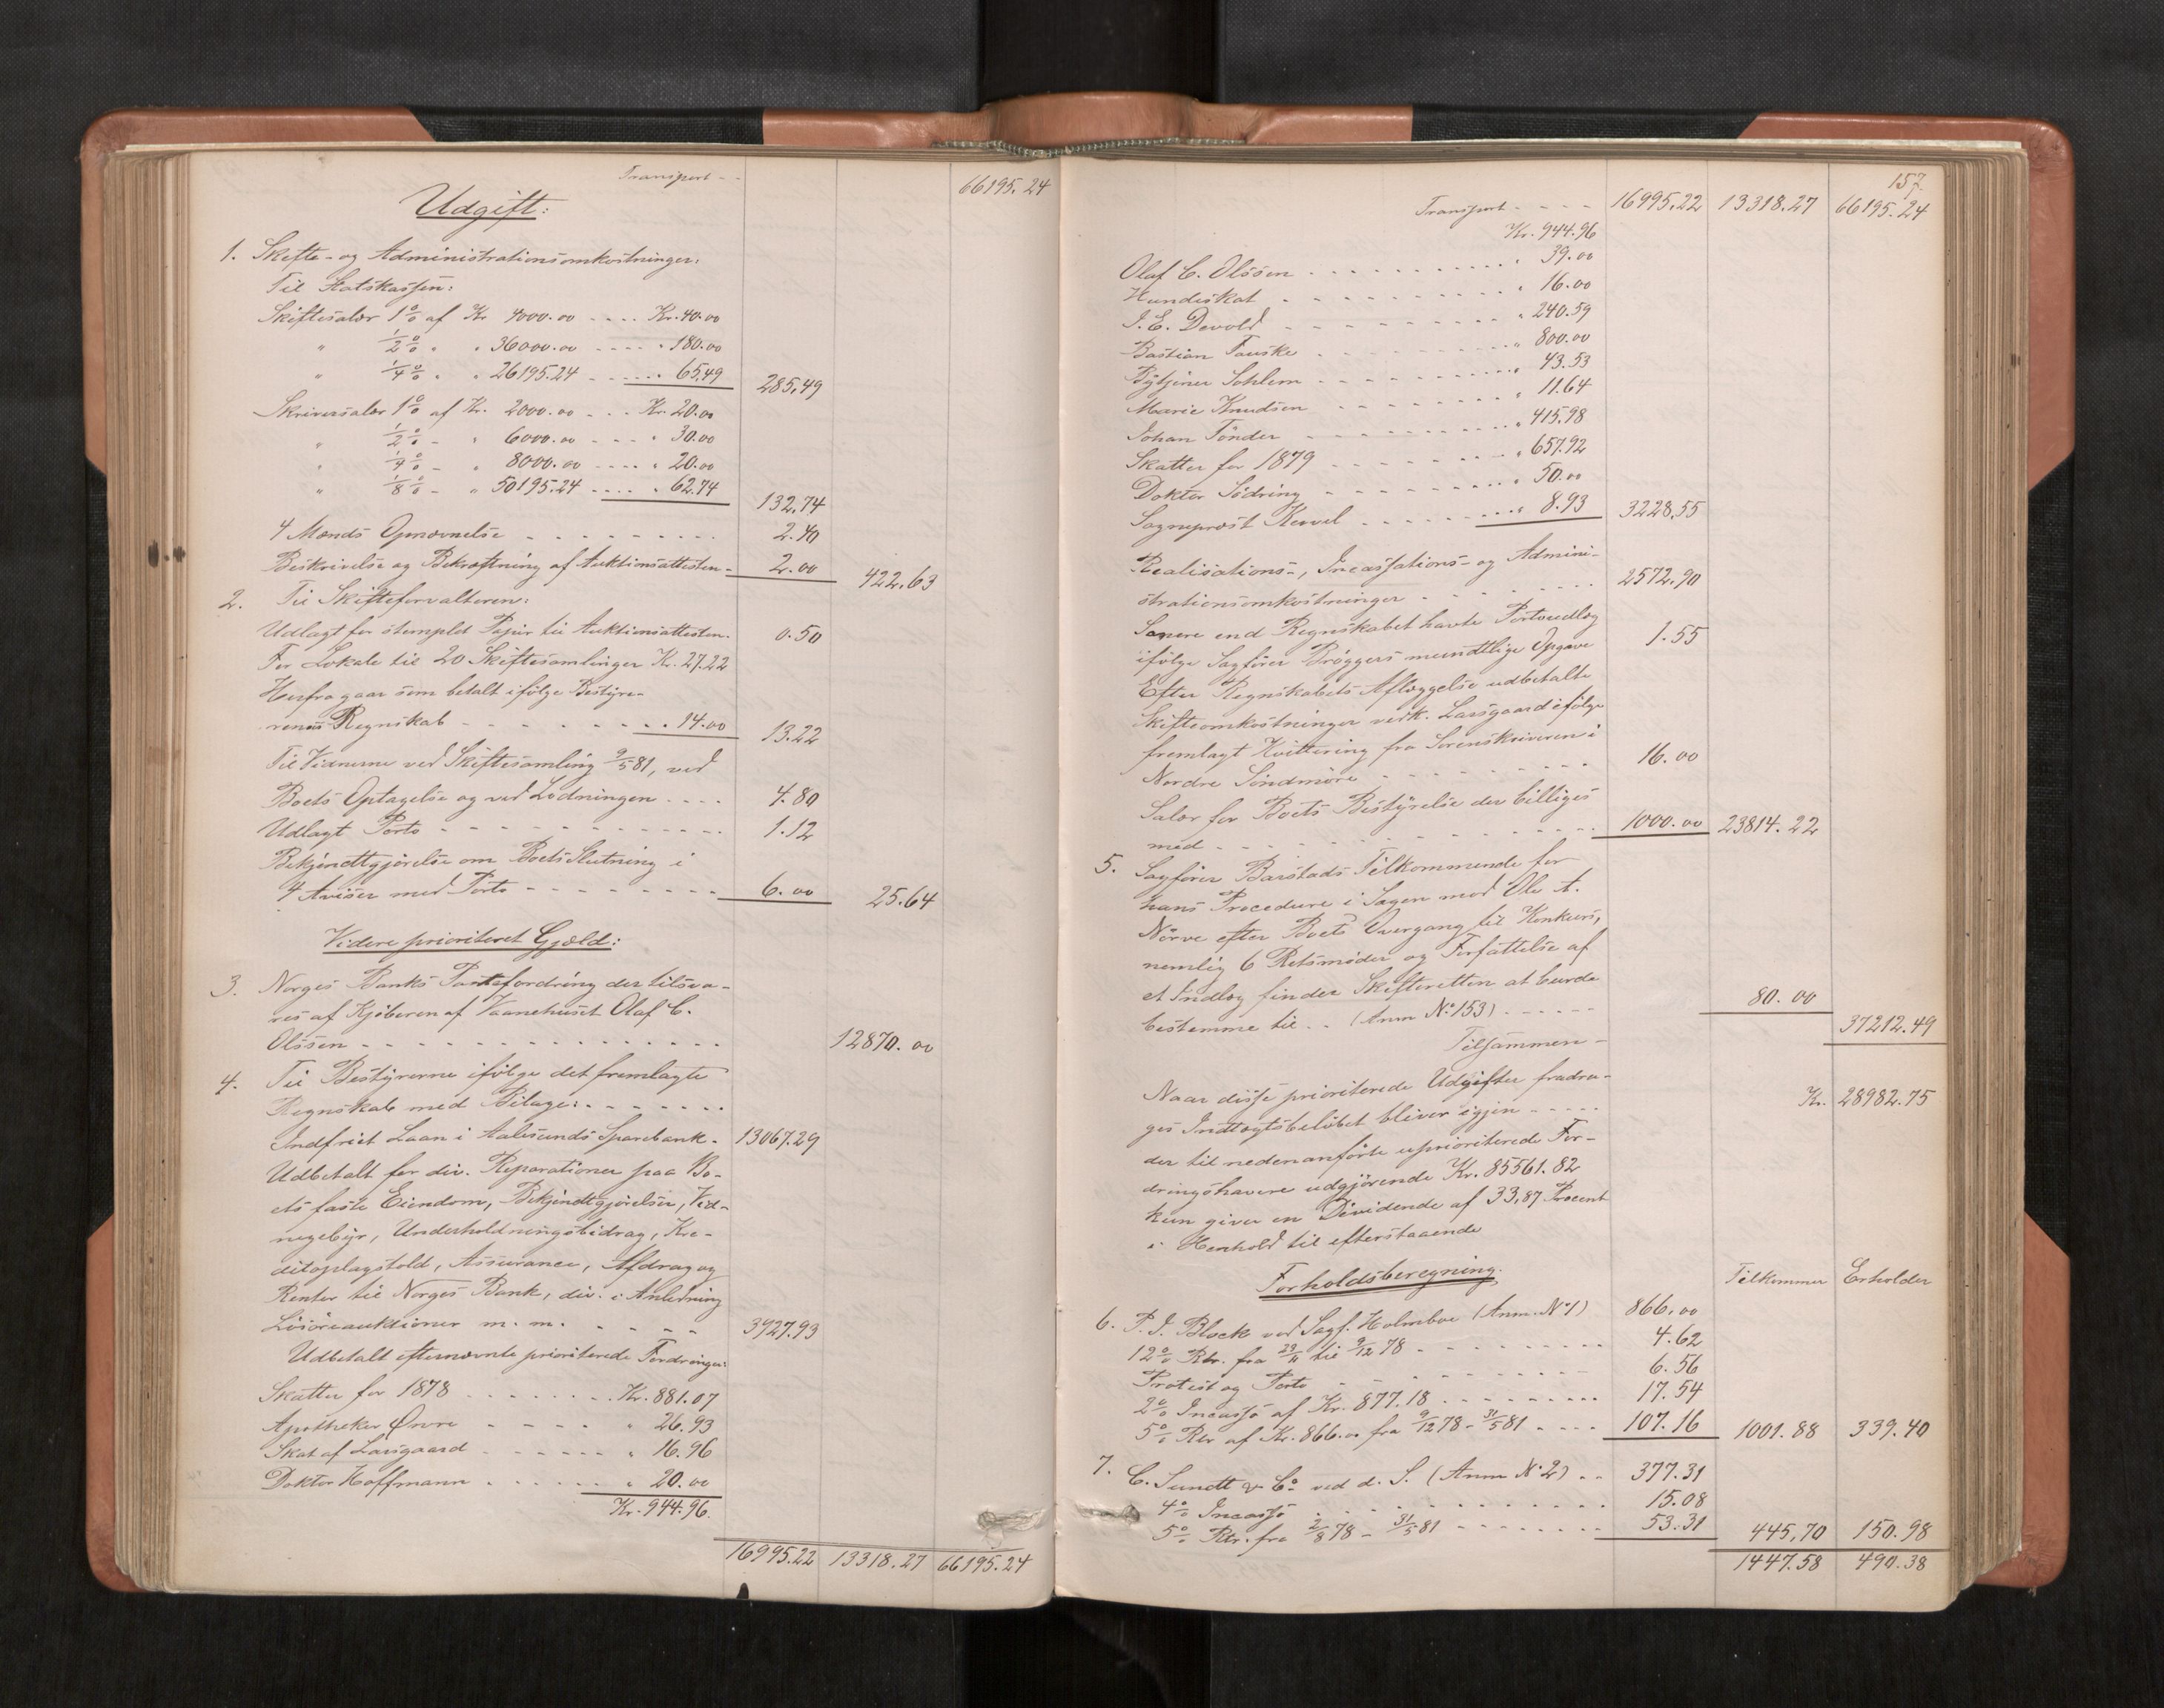 Transport - - 66195.24
Udgift:
1. Skifte- og Administrationsomkostninger:
Til Statskassen:
Skiftesalær 1% af Kr 4000.00 .... Kr. 40.00
" ½% " " 36000.00 .... " 180.00
" ¼% " " 26195.24 .... " 65,49 285,49
Skriversalær 1% af Kr. 2000.00 ... Kr. 20.00
" ½% - " 6000.00 ... " 30.00
" ¼% - " 8000.00 .... " 20.00
" ⅛% - " 50195.24 .... " 62.74 132,74
4 Mænds Opnævnelse - - - - 2.40
Beskrivelse og Bekræftning af Auktionsattesten - 2.00 422,63
2. Til Skifteforvalteren:
Udlagt for stemplet Papir til Auktionsattesten. 0.50
For Lokale til 20 Skiftesamlinger Kr. 27.22
Herfra gaar som betalt ifølge Bestyre-
rens Regnskab - - - - 14.00 13.22
Til Vidnerne ved Skiftesamling 9/5 81, ved
Boets Optagelse og ved Lodningen .... 4.80
Udlagt Porto - - - - 1.12
Bekjendtgjørelse om Boets Slutning i
4 Aviser med Porto - - - - 6.00 25.64
Videre prioriteret Gjæld:
3. Norges Banks Pantefordring der tilsva-
res af Kjøberen af Vaanehuset Olaf C.
Olssen - - - - 12870.00
4. Til Bestyrerne ifølge det fremlagte
Regnskab med Bilage: - - - -
Indfriet Laan i Aalesunds Sparebank - 13067.29
Udbetalt for div. Reparationer paa Bo-
ets faste Eiendom, Bekjendtgjørelser, Vid-
negebyr, Underholdningsbidrag, Kre-
ditoplagstold, Assurance, Afdrag og
Renter til Norges Bank, div. i Anledning
Løsøreauktioner m. m. - - - - 3927.93
Udbetalt efternævnte prioriterede Fordringer:
Skatter for 1878 . . . . Kr. 881.07
Apotheker Øwre - - - - " 26.93
Skat af Larsgaard - - - - " 16.96
Doktor Hoffmann . . . . " 20.00
Kr. 944.96.
16995.22 13318.27 66195.24
157.
Transport - - - - 16995.22 13318.27 66195.24
Kr. 944.96
Olaf C. Olssen . . . . " 39.00
Hundeskat . . . . " 16.00
I. E. Devold - - - - " 240.59
Bastian Fauske . . . . " 800.00
Bytjener Sohlem . . . . " 43.53
Marie Knudsen . . . . " 11.64
Johan Tönder - - - - " 415.98
Skatter for 1879 - - - - " 657.92
Doktor Södring - - - - " 50.00
Sogneprest - - - - " 8.93 3228,55
Realisations-, Incassations- og Admini-
strationsomkostninger - - - - 2572.90
Senere end Regnskabet havte Portoudlæg
ifølge Sagfører Brøggers mundtlige Opgave 1.55
Efter Regnskabets Aflæggelse udbetalte
Skifteomkostninger vedk. Larsgaard ifølge
fremlagt Kvittering fra Sorenskriveren i
Nordre Söndmöre - - - - 16.00
Salær for Boets Bestyrelse der billiges
med - - - - 1000.00 23814.22
5. Sagfører Barstads Tilkommende for
hans Procedure i Sagen mod Ole A.
Nörve efter Boets Overgang til Konkurs,
nemlig 6 Retsmöder og Forfattelse af
et Indlæg finder Skifteretten at burde
bestemme til . . (Anm No. 153) - - - - 80.00
37212.49
Tilsammen -
Naar disse prioriterede Udgifter fradra-
ges Indtægtsbelöbet bliver igjen - - - - Kr. 28982.75
der til nedenanførte uprioriterede For-
dringshavere udgjørende Kr. 85561.82
kun giver en Dividende af 33,87 Procent
i Henhold til efterstaaende
Forholdsberegning. Tilkommer Erholder
6. P. I. Block ved Sagf. Holmboe (Anm. No 1) 866.00
12% Rtr. fra 23/11 til 9/12 78 - - - - 4.62
Protest og Porto - - - - 6.56
2% Incasso af Kr. 877.18 - - - - 17.54
5% Rtr af Kr. 866.00 fra 9/12 78 - 31/5 81 - - - - 107.16 1001.88 339.40
7. C. Sundt & Co. ved d. S. (Anm No 2) . . 377.31
4% Incasso . . . . 15.08
5% Rtr. fra 2/8 78 - 31/5 81 - - - - 53.31 445,70 150.98
1447.58 490.38